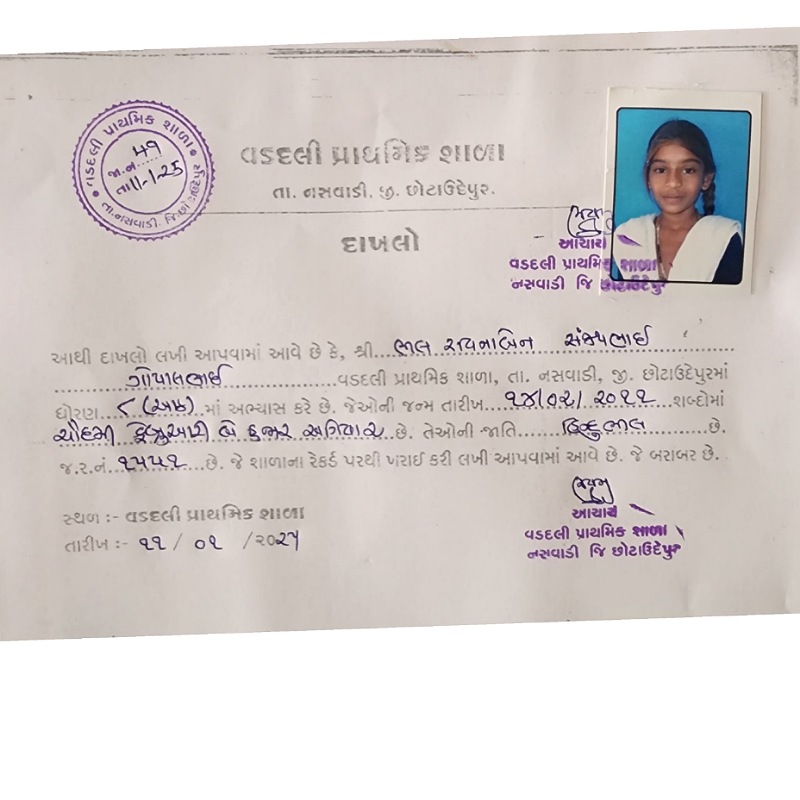 વડદલી પ્રાથમિક શાળા
જા.નં 49
તા 11-1-25
તા.નસવાડી. જિ.છોટાઉદેપુર
વડદલી પ્રાથમિક શાળા
તા. નસવાડી. જી. છોટાઉદેપુર.
દાખલો
આચાર્ય
વડદલી પ્રાથમિક શાળા
નસવાડી જિ છોટાઉદેપુર
આથી દાખલો લખી આપવામાં આવે છે કે, શ્રી... ભીલ રાયનાબેન સંજયભાઈ
ગોપાલભાઈ ...વડદલી પ્રાથમિક શાળા, તા. નસવાડી, જી. છોટાઉદેપુરમાં
ધોરણ ૮ (આઠ) માં અભ્યાસ કરે છે. જેઓની જન્મ તારીખ ૧૪/૦૨/૨૦૧૧ શબ્દોમાં
ચૌદમી ફેબ્રુઆરી બે હજાર અગિયાર છે. તેઓની જાતિ હિન્દુ ભીલ છે.
જ.ર.નં. ૧૫૫૧ છે. જે શાળાના રેકર્ડ પરથી ખરાઈ કરી લખી આપવામાં આવે છે. જે બરાબર છે.
સ્થળ :- વડદલી પ્રાથમિક શાળા
તારીખ :- ૧૧ / ૦૧ / ૨૦૨૫
આચાર્ય
વડદલી પ્રાથમિક શાળા
નસવાડી જિ છોટાઉદેપુર